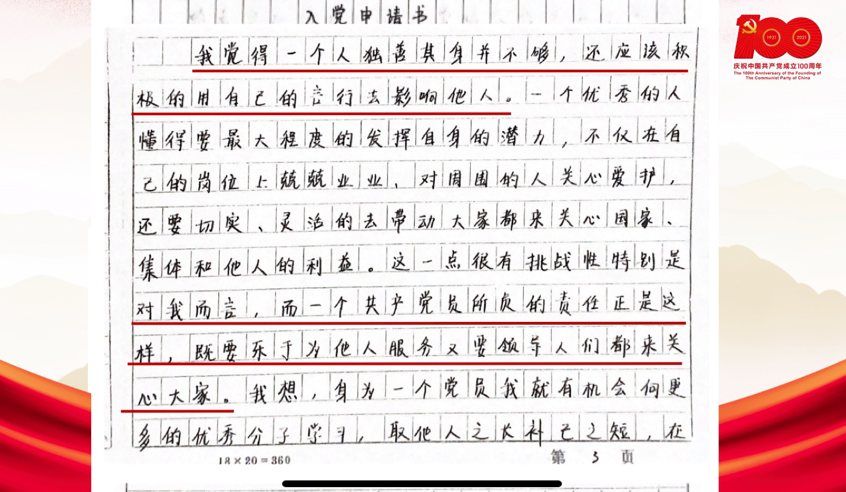 入党申请书
100
1921
2021
庆祝中国共产党成立100周年
The 100th Anniversary of the Founding of
The Communist Party of China
我觉得一个人独善其身并不够，还应该积
极的用自己的言行去影响他人。一个优秀的人
懂得要最大程度的发挥自身的潜力，不仅在自
己的岗位上兢兢业业、对周围的人关心爱护，
还要切实、灵活的去带动大家都来关心国家、
集体和他人的利益。这一点很有挑战性特别是
对我而言，而一个共产党员所负的责任正是这
样，既要乐于为他人服务又要领导人们都来关
心大家。我想，身为一个党员我就有机会向更
多的优秀分子学习，取他人之长补己之短，在
18×20=360
第 3 页